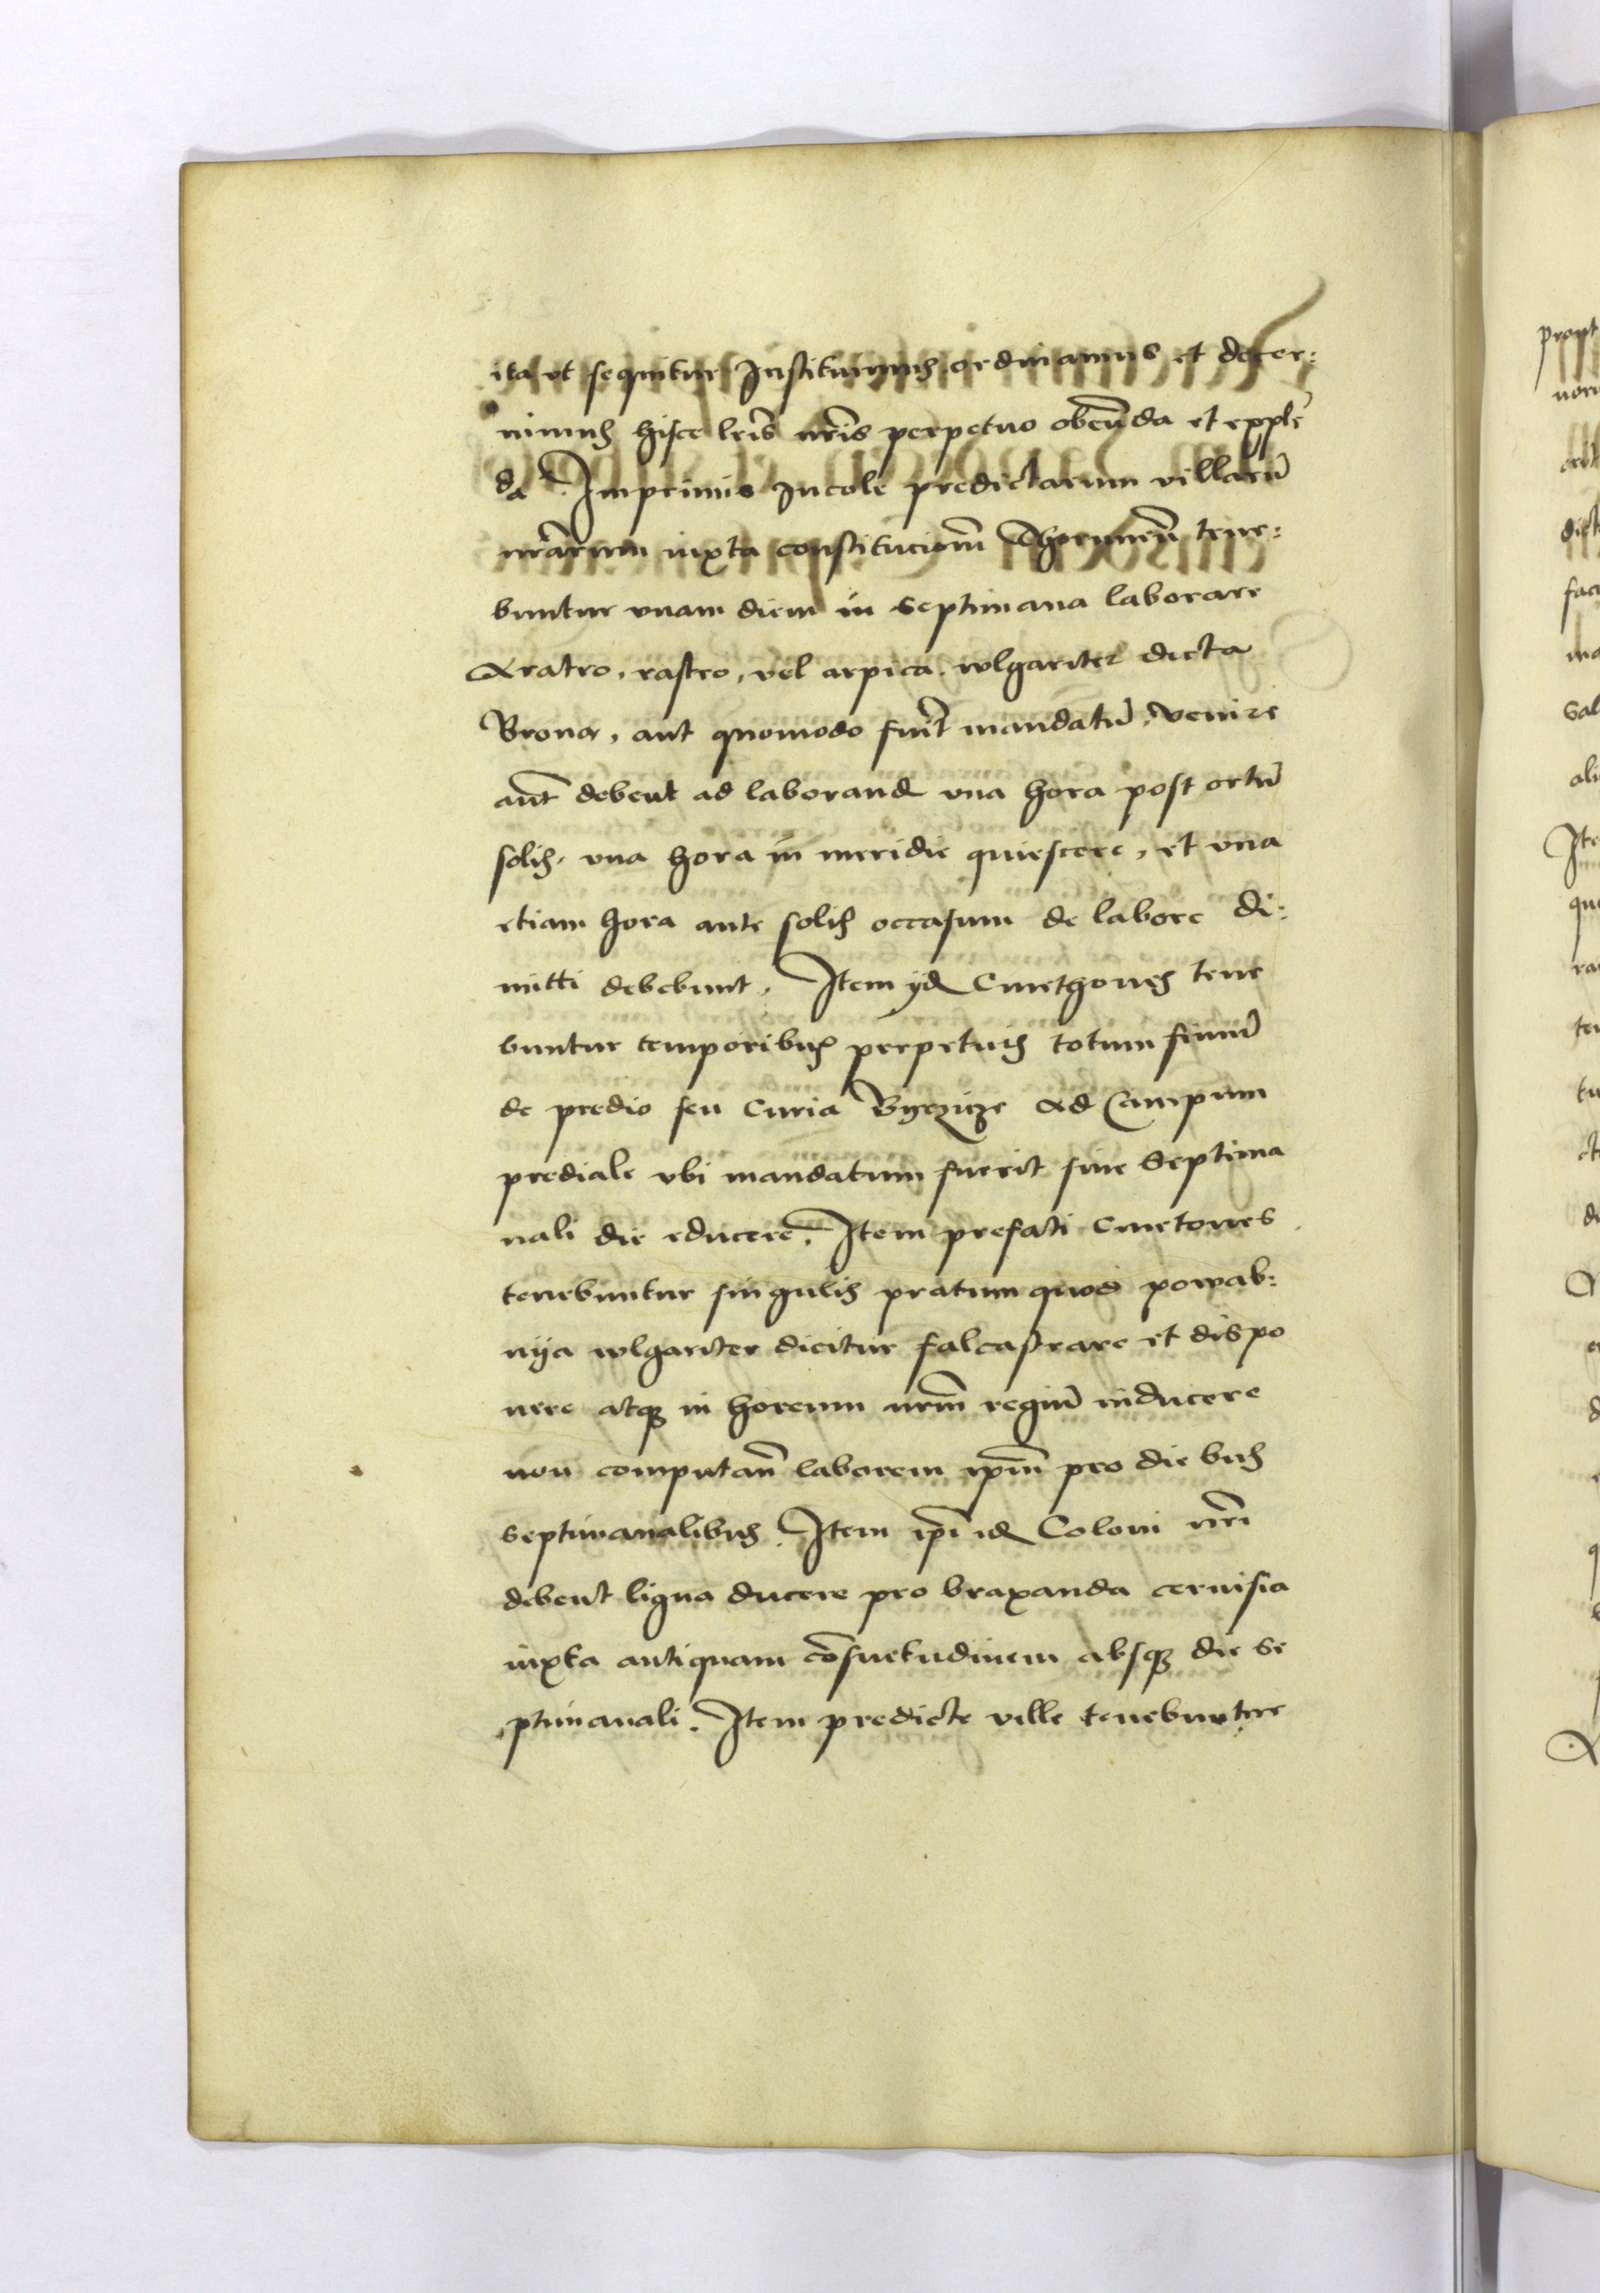 ita vt sequitur Instituimus ordinamus et decer:
nimus hisce lr̃is nr̃is perpetuo obeũda et expplẽ
da. Imprimis Incole predictarum villarũ
nr̃arum iuxta constitucionẽ Thorunen̄ tene:
buntur vnam diem in septimana laborare
Aratro, rastro, vel arpica. wlgariter dicta
Brona, aut quomodo fuer̃t mandatũ, venire
aut̃ debent ad laborand vna hora post ortũ
solis, vna hora in meridie quiescere, et vna
etiam hora ante solis occasum de labore di:
mitti debebunt. Item ijd Cmethones tene
buntur temporibus perpetuis totum fimũ
de predio seu Curia ad Campum
prediale vbi mandatum fuerit sine septima
nali die educere. Item prefati Cmetones
tenebuntur singulis pratum quod powab:
nya wlgariter dicitur falcastrare et dispo
nere atq in horeum nr̃m regiũ inducere
non computan̄ laborem ip̃m pro die bus
septimanalibus. Item ip̃i id Coloni nr̃i
debent ligna ducere pro braxanda ceruisia
iuxta antiquam cõsuetudinem absq die se
ptimanali. Item predicte ville tenebuntur